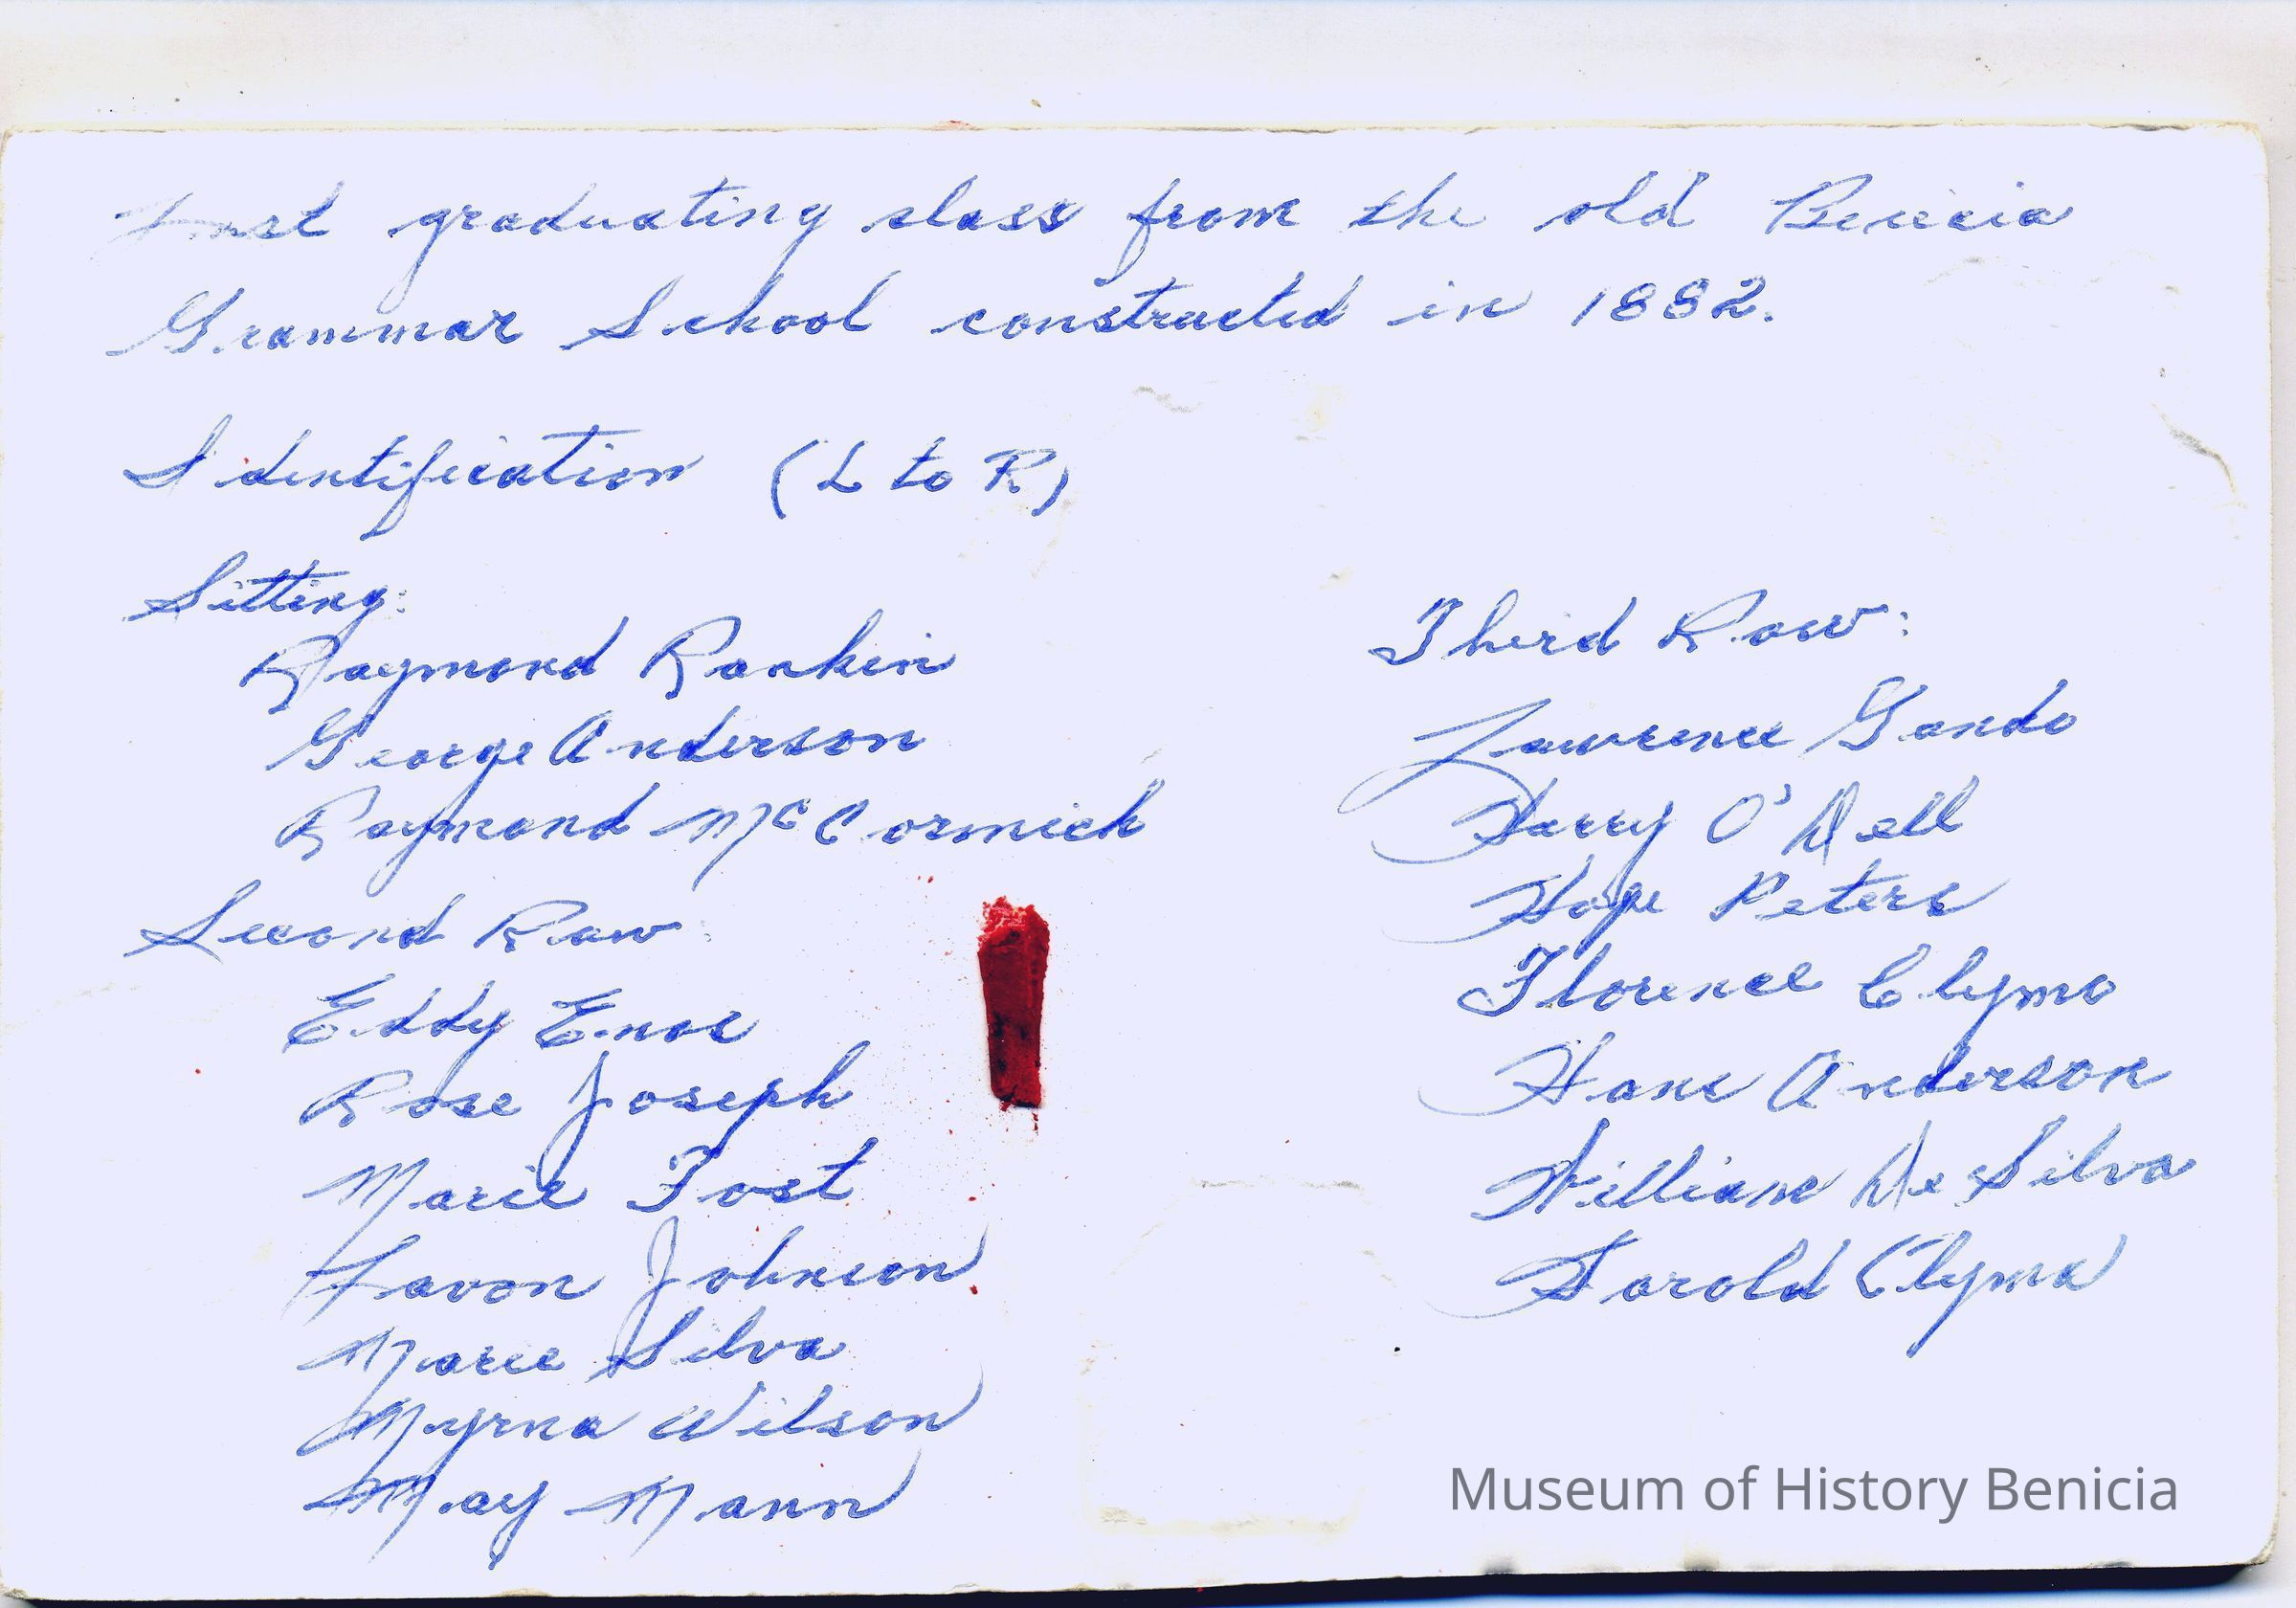 graduating class from the old Benicia
Grammar School constructed in 1882.
Identification (L to R)
Sitting:
Raymond Rankin
George Anderson
Raymond McCormick
Second Row:
Eddy Enos
Rose Joseph
Marie
Lavon Johnson
Marie Silva
Myrna Wilson
May Mann
Third Row:
Lawrence Gando
Harry O'Dell
Hope Peters
Florence Clymo
Hans Anderson
William De Silva
Harold Clyma
Museum of History Benicia